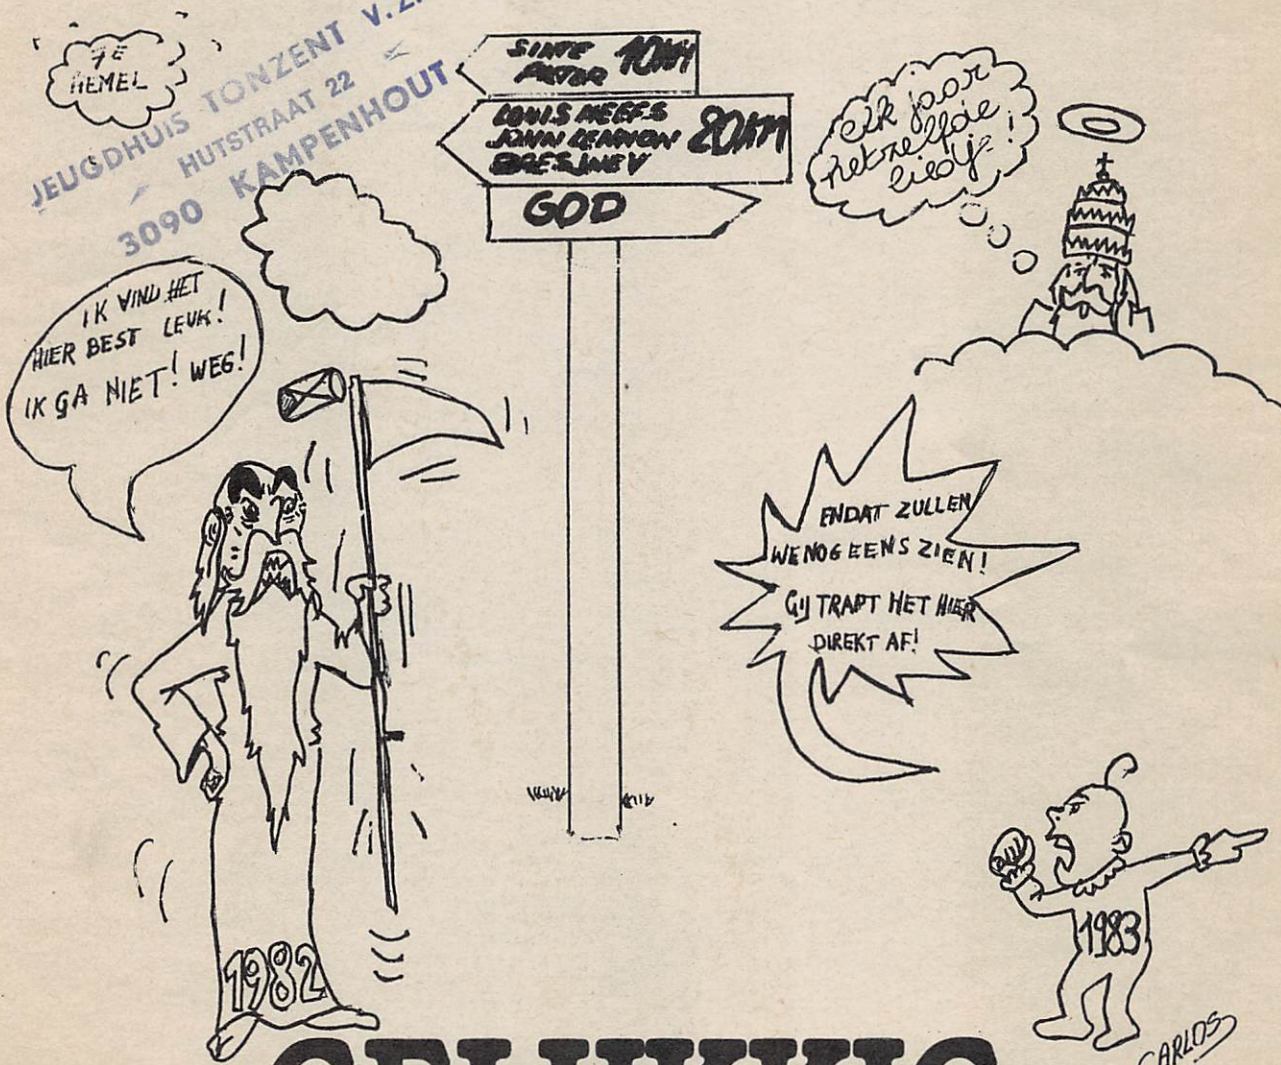 7E
HEMEL
JEUGDHUIS TONZENT V.Z.
HUTSTRAAT 22
3090 KAMPENHOUT
SINTE
PIETER 10KM
LOUIS NEEFS
JOHN LENNON 20KM
BRESJNEV
GOD
elk jaar
hetzelfde
liedje!
IK VIND HET
HIER BEST LEUK!
IK GA NIET! WEG!
ENDAT ZULLEN
WENOGEENS ZIEN!
GIJ TRAPT HET HIER
DIREKT AF!
1982
1983
CARLOS
GELUKKIG